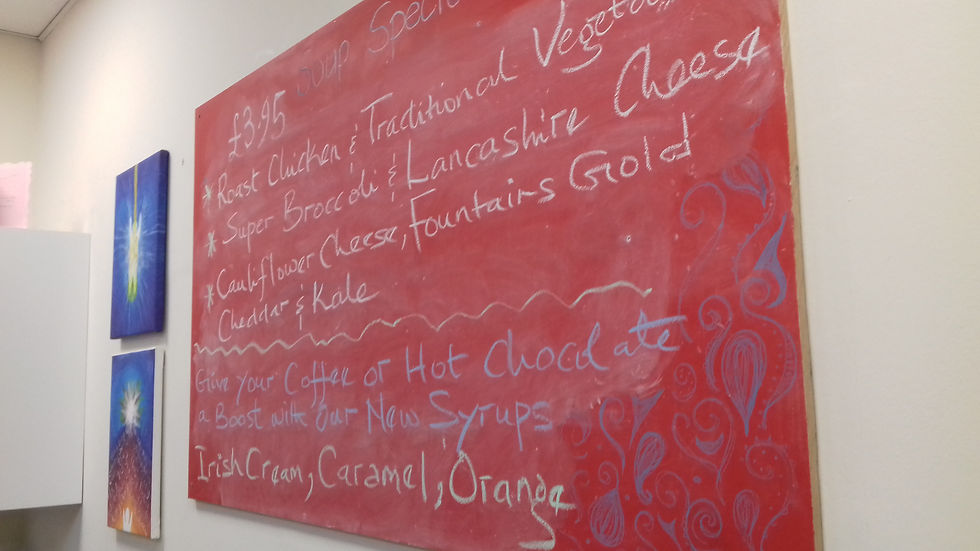 Soup Speci
£3.95
* Roast Chicken & Traditional Vegeta
* Super Broccoli & Lancashire Cheese
* Cauliflower Cheese, Fountains Gold
Cheddar & Kale
Give your Coffee or Hot Chocolate
a Boost with Our New Syrups
Irish Cream, Caramel, Orange